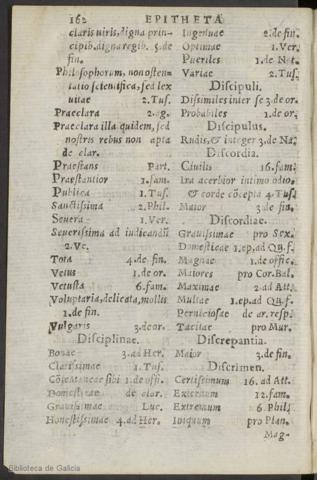 162 EPITHETA
claris uiris, digna prin-
cipib. digna regib. 3. de
fin.
Philosophorum, non osten-
tatio scientifica, sed lex
uitae 2. Tus.
Praeclara 2. ag.
Praeclara illa quidem, sed
nostris rebus non apta
de clar.
Praestans Part.
Praestantior 1. fam.
Publica 1. Tus.
Sanctissima 2. Phil.
Seuera 1. Ver.
Seuerissima ad iudicandū
2. Ve.
Tota 4. de fin.
Vetus 1. de or.
Vetusta 6. fam.
Voluptaria, delicata, mollis
1. de fin.
Vulgaris 3. de or.
Disciplinae.
Bonae 3. ad Her.
Clarissimae 1. Tus.
Cōsētaneae sibi 1. de offi.
Domesticae de clar.
Grauissimae Luc.
Honestissimae 4. ad Her.
Ingenuae 2. de fin.
Optimae 1. Ver.
Pueriles 1. de Nat.
Variae 2. Tus.
Discipuli.
Dissimiles inter se 3. de or.
Probabiles 1. de or.
Discipulus.
Rudis, & integer 3. de Na.
Discordia.
Ciuilis 16. fam.
Ira acerbior intimo odio,
& corde cōcepta 4. Tus.
Maior 3. de fin.
Discordiae.
Grauissimae pro Sex.
Domesticae 1. ep. ad Qu. f.
Magnae 1. de offic.
Maiores pro Cor. Bal.
Maximae 2. ad Att.
Multae 1. ep. ad Qu. f.
Perniciosae de ar. resp.
Tacitae pro Mur.
Discrepantia.
Maior 3. de fin.
Discrimen.
Certissimum 16. ad Att.
Externum 12. fam.
Extremum 6. Phil.
Iniquum pro Plan.
Mag-
Biblioteca de Galicia